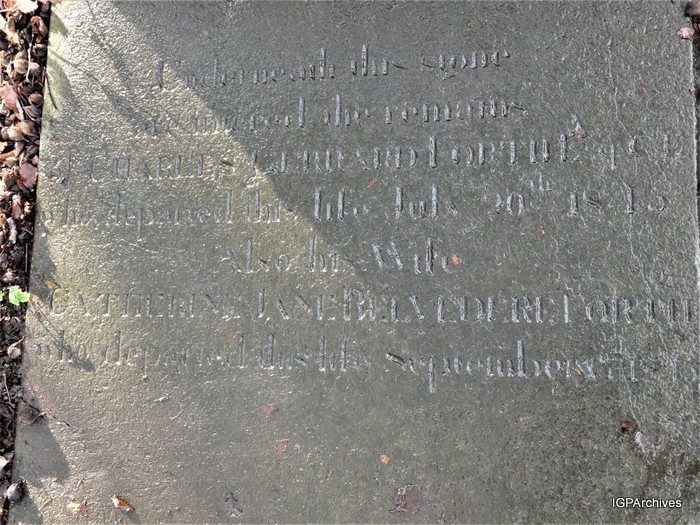 Underneath this stone
are interred the remains
of CHARLES GERRARD FORTH Esq
who departed this life July 20th 1845
Also his Wife
CATHERINE JANE FORTH
who departed this life September
IGPArchives